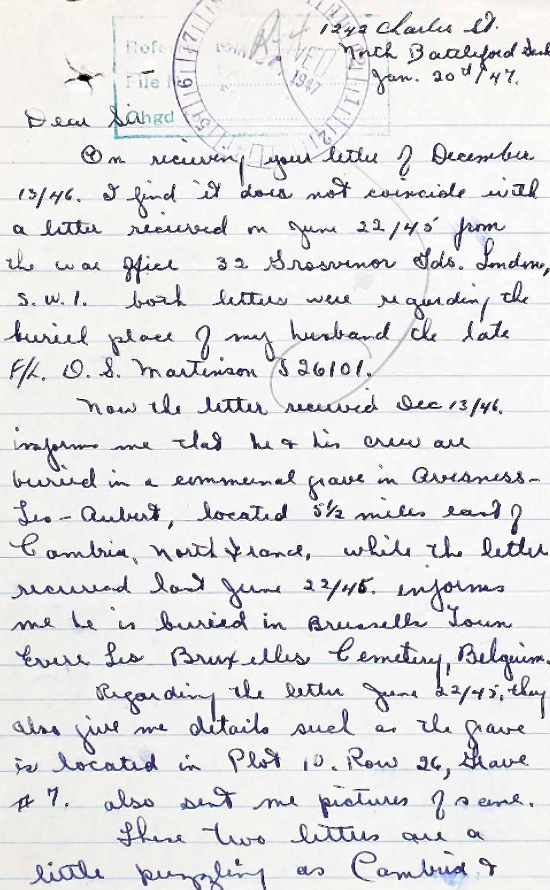 1242 Charles St.
North Battleford Sask
Jan. 20th/47.
Refe
File N
Chgd
1947
Dear Sir
On recieving your letter of December
13/46. I find it does not coincide with
a letter recieved on June 22/45 from
the war office 32 Grosvenor Gds. London,
S.W.1. both letters were regarding the
buriel place of my husband the late
F/L. O. S. Martinson J 26101.
Now the letter received Dec 13/46.
informs me that he & his crew are
buried in a communal grave in Avesness-
Les-Aubert, located 5½ miles east of
Cambria, North France, while the letter
recieved last June 22/45. informs
me he is buried in Brussells Town
Evere Les Bruxelles Cemetery, Belguim.
Regarding the letter June 22/45, they
also give me details such as the grave
is located in Plot 10. Row 26, Grave
# 7. also sent me pictures of same.
These two letters are a
little puzzling as Cambria &